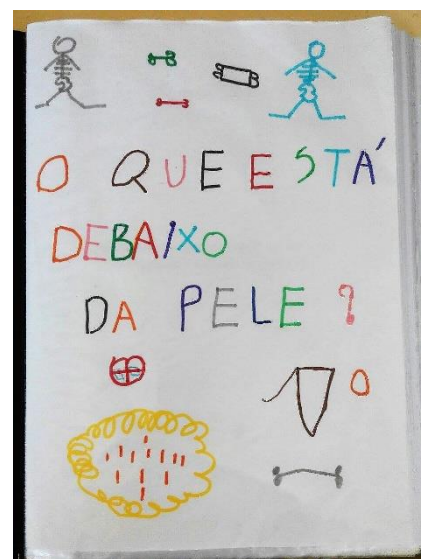 O QUE ESTÁ
DEBAIXO
DA PELE ?